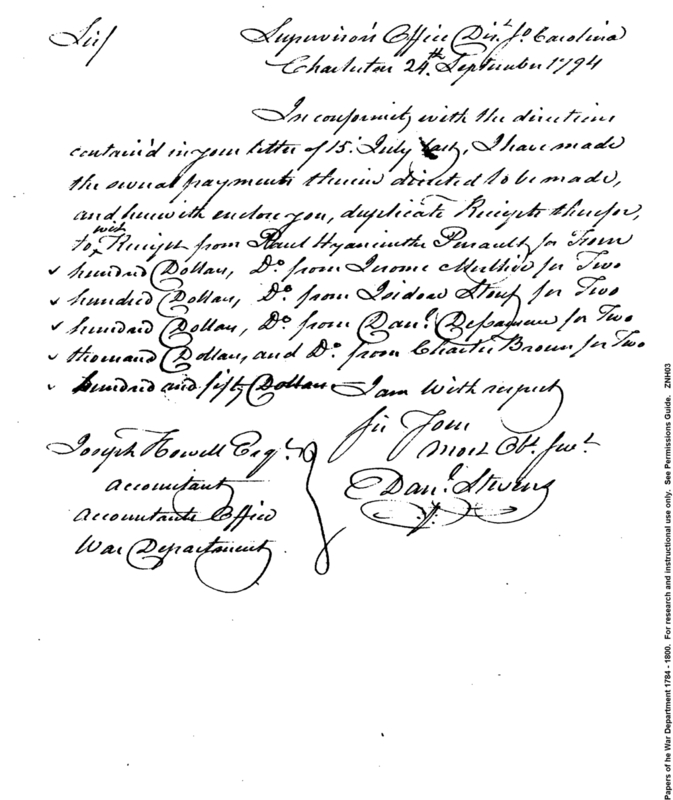 Sir/ Supervisor's Office Dist. So Carolina
Charleston 24th September 1794
In conformity with the directions
contain'd in your letter of 15. July last, I have made
the several payments therein directed to be made,
and herewith enclose you, duplicate Receipts therefor,
to wit Receipt from Paul Hyacinthe Perault for
hundred Dollars, Do. from Jerome for Two
hundred Dollars, Do. from Isidore for Two
hundred Dollars, Do. from Danl. for Two
thousand Dollars, and Do. from Charles Brown for Two
hundred and fifty Dollars I am with respect
Sir Your
Most Obt. Sert.
Danl. Stevens
Joseph Howell Esqr.
Accountant
Accountants Office
War Department
Papers of he War Department 1784 - 1800. For research and instructional use only. See Permissions Guide. ZNH03